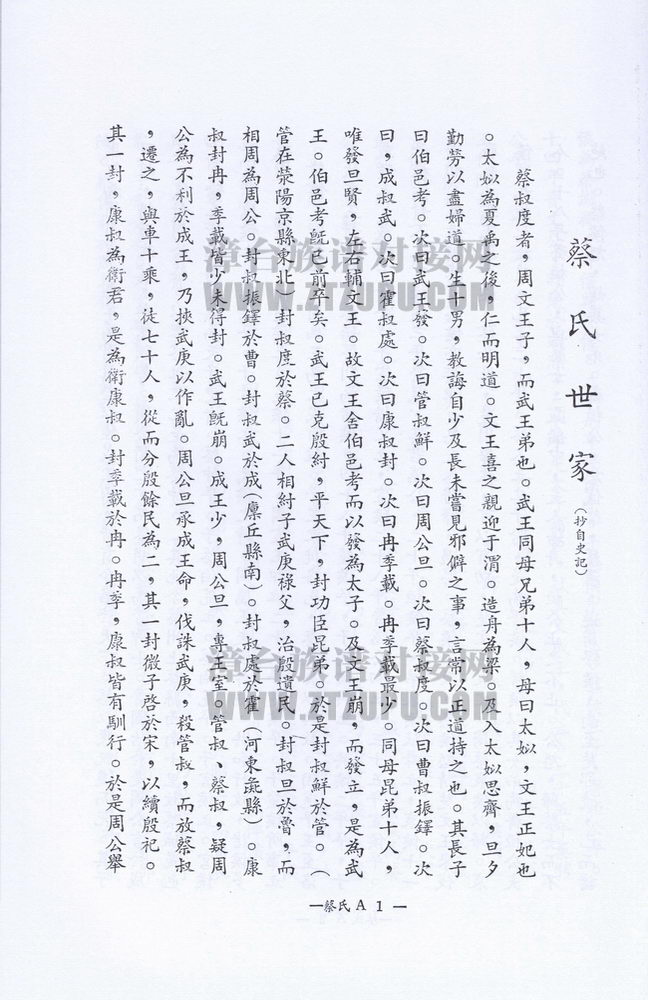 蔡氏世家(抄自史記)
蔡叔度者，周文王子，而武王弟也。武王同母兄弟十人，母曰太姒，文王正妃也
。太姒為夏禹之後，仁而明道。文王喜之親迎于渭。造舟為梁。及入太姒思齊，旦夕
勤勞以盡婦道。生十男，教誨自少及長未嘗見邪僻之事，言常以正道持之也。其長子
曰伯邑考。次曰武王發。次曰管叔鮮。次曰周公旦。次曰蔡叔度。次曰曹叔振鐸。次
曰，成叔武。次曰霍叔處。次曰康叔封。次曰冉季載。冉季載最少。同母昆弟十人，
唯發旦賢，左右輔文王。故文王舍伯邑考而以發為太子。及文王崩，而發立，是為武
王。伯邑考既已前卒矣。武王已克殷紂，平天下，封功臣昆弟。於是封叔鮮於管。（
管在滎陽京縣東北）封叔度於蔡。二人相紂子武庚祿父，治殷遺民。封叔旦於魯，而
相周為周公。封叔振鐸於曹。封叔武於成(廩丘縣南)。封叔處於霍（河東彘縣）。康
叔封冉，季載皆少未得封。武王既崩。成王少，周公旦，專王室。管叔、蔡叔，疑周
公為不利於成王，乃挾武庚以作亂。周公旦承成王命，伐誅武庚，殺管叔，而放蔡叔
，遷之，與車十乘，徒七十人，從而分殷餘民為二，其一封微子啓於宋，以續殷祀。
其一封，康叔為衛君，是為衛康叔。封季載於冉。冉季，康叔皆有馴行。於是周公舉
—蔡氏 A 1 —
漳台族谱对接网
WWW.ZTZUPU.COM
漳台族谱对接网
WWW.ZTZUPU.COM